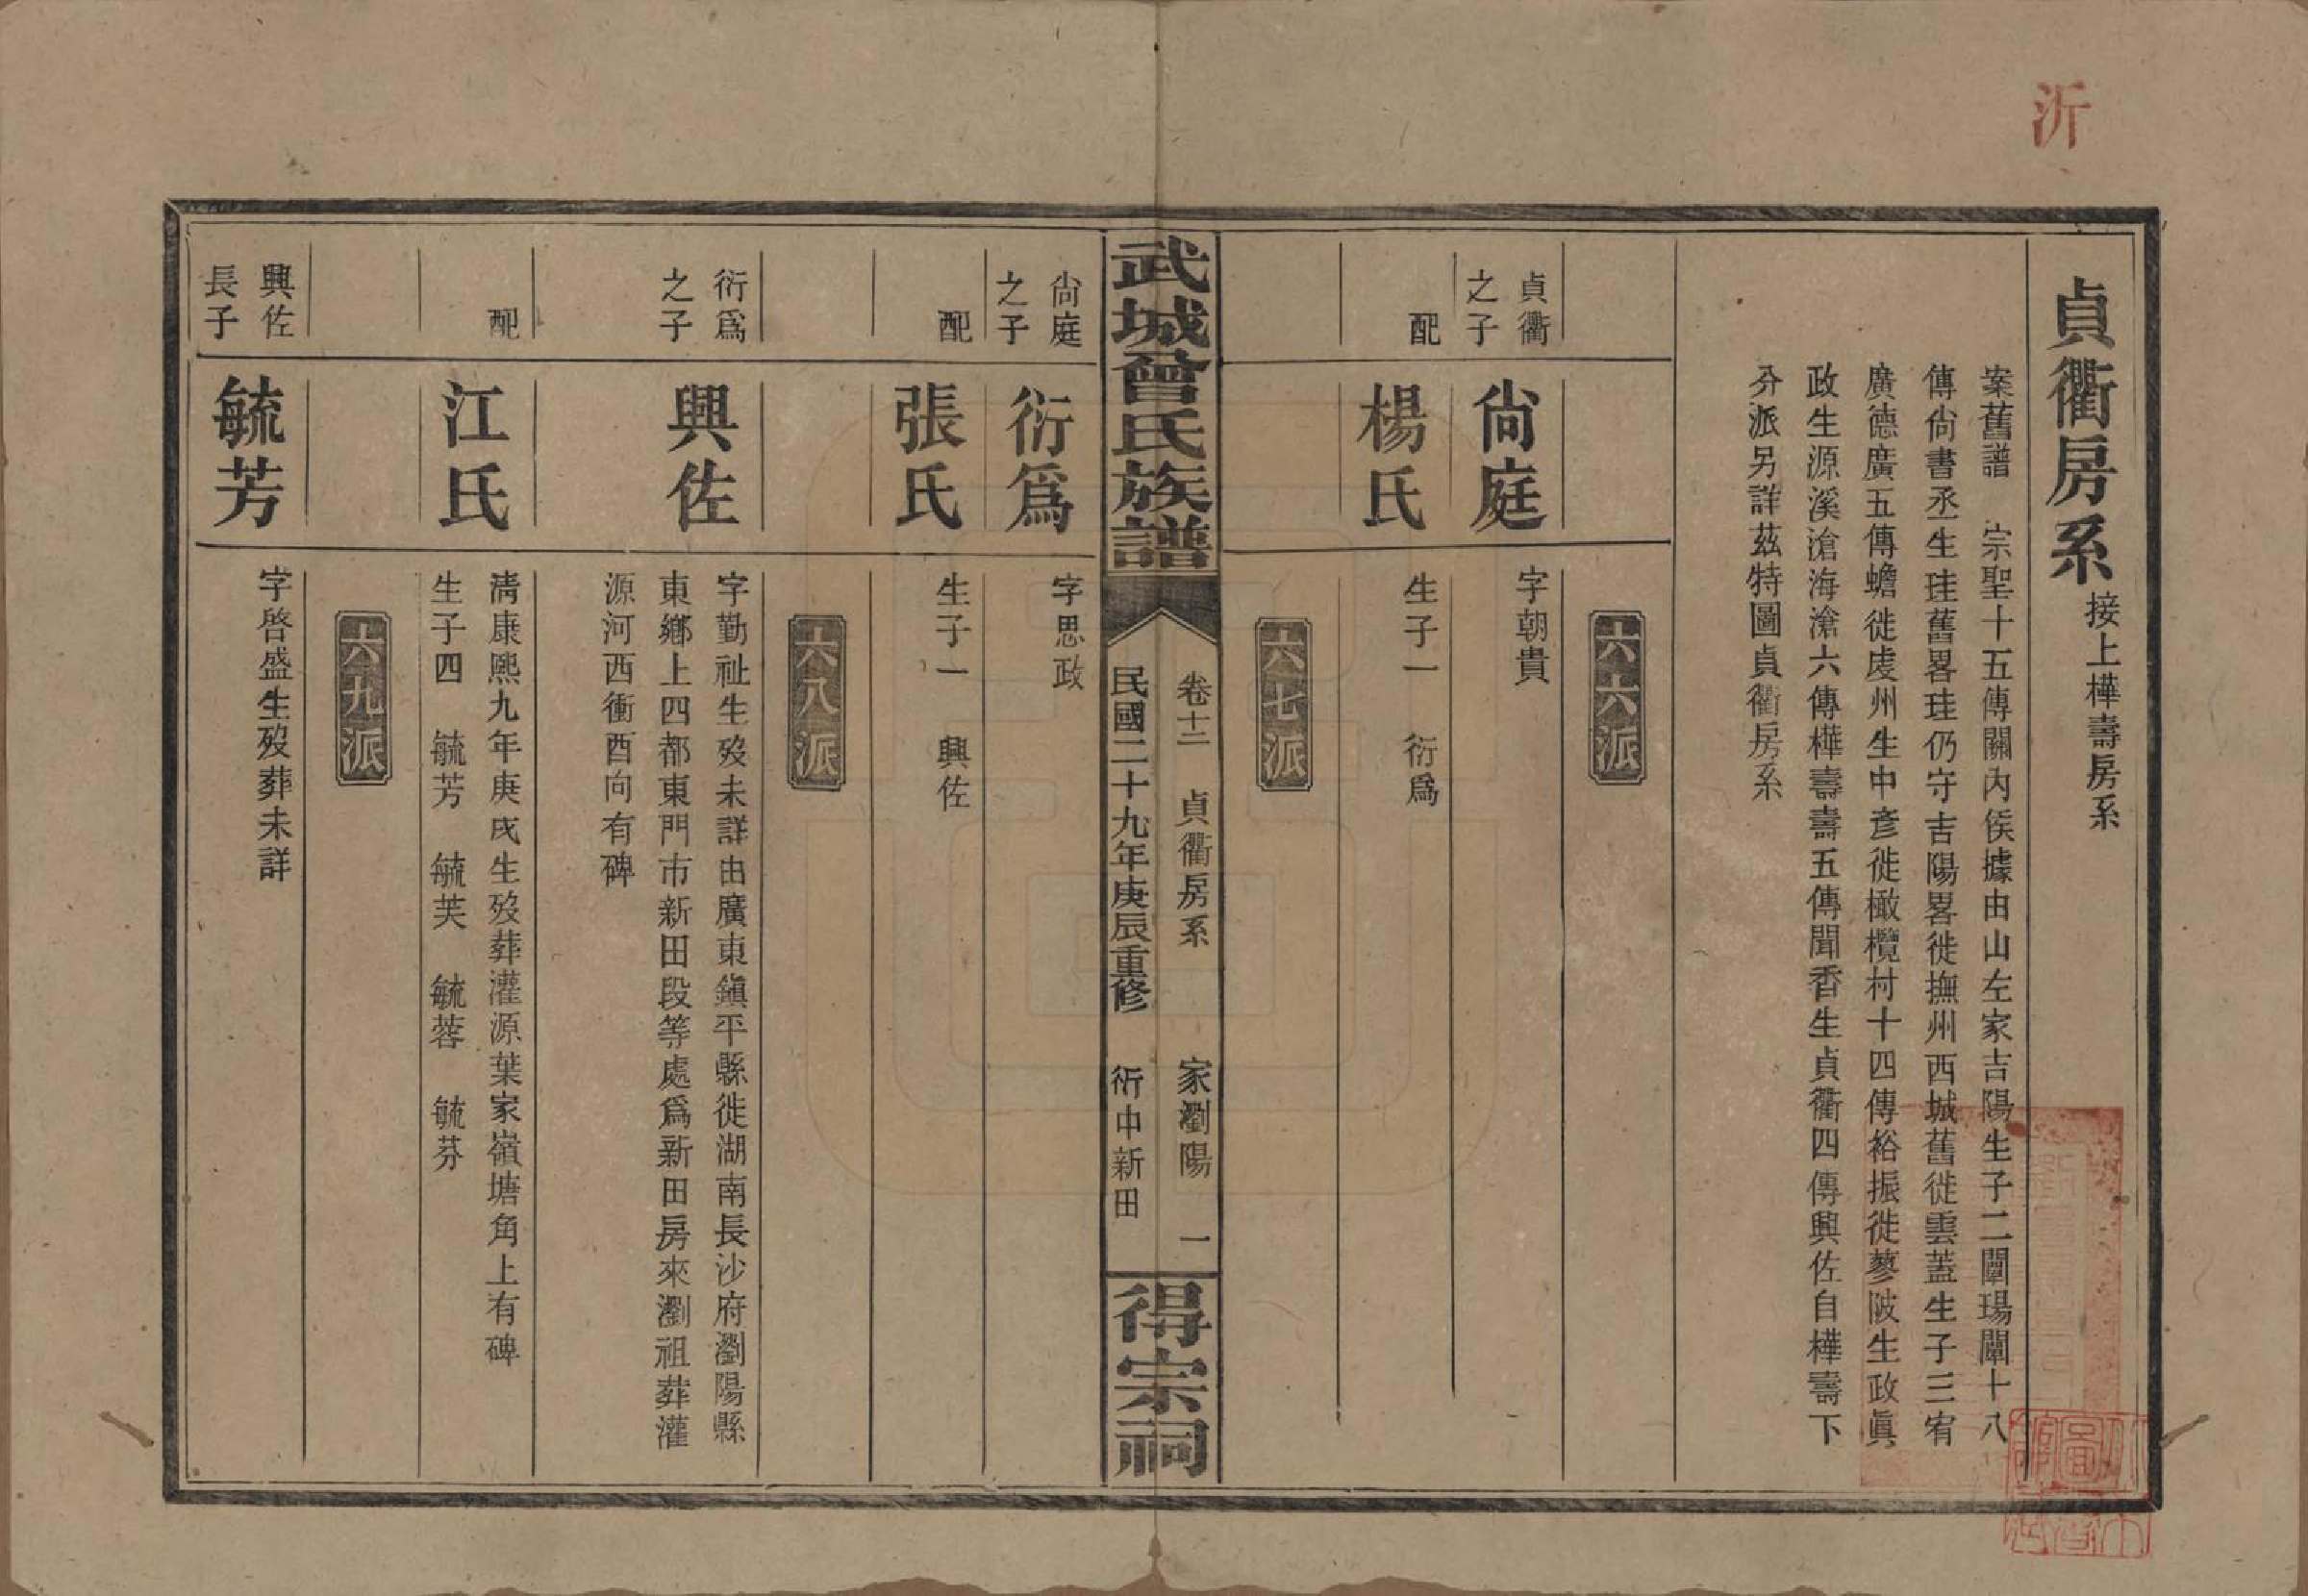 沂
貞衢房系 接上樺壽房系
案舊譜 宗聖十五傳關內侯據由山左家吉陽生子二闡瑒闡十八
傳尙書丞生珪舊畧珪仍守吉陽畧徙撫州西城舊徙雲蓋生子三宥
廣德廣五傳蟾徙虔州生中彥徙橄欖村十四傳裕振徙蓼陂生政眞
政生源溪滄海滄六傳樺壽壽五傳聞香生貞衢四傳興佐自樺壽下
分派另詳茲特圖貞衢房系
六六派
貞衢
之子
尙庭
字朝貴
配
楊氏
生子一 衍爲
六七派
武城曾氏族譜
卷十二 貞衢房系 家瀏陽 一
民國二十九年庚辰重修 衍中新田
得宗祠
尙庭
之子
衍爲
字思政
配
張氏
生子一 興佐
六八派
衍爲
之子
興佐
字勤祉生歿未詳由廣東鎭平縣徙湖南長沙府瀏陽縣
東鄉上四都東門市新田段等處爲新田房來瀏祖葬灌
源河西衝酉向有碑
配
江氏
淸康熙九年庚戌生歿葬灌源葉家嶺塘角上有碑
生子四 毓芳 毓芙 毓蓉 毓芬
六九派
興佐
長子
毓芳
字啓盛生歿葬未詳